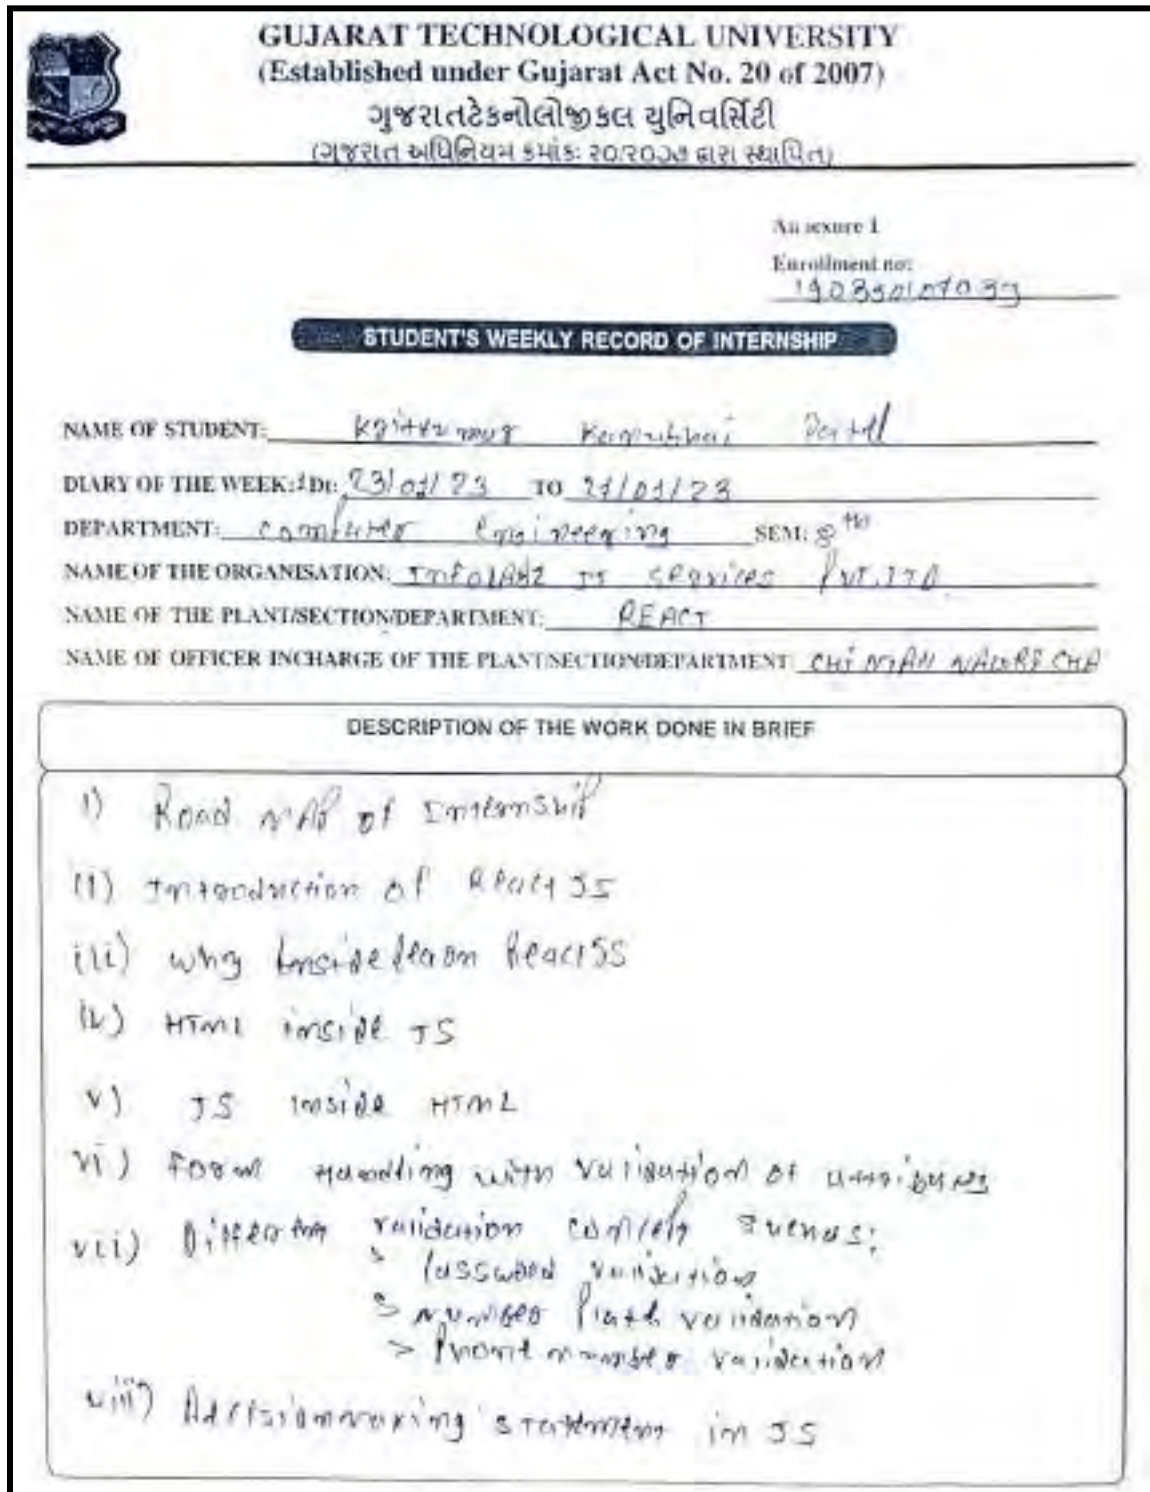 GUJARAT TECHNOLOGICAL UNIVERSITY
(Established under Gujarat Act No. 20 of 2007)
ગુજરાતટેકનોલોજીકલ યુનિવર્સિટી
(ગુજરાત અધિનિયમ ક્રમાંક: ૨૦/૨૦૦૭ દ્વારા સ્થાપિત)
Annexure 1
Enrollment no:
STUDENT'S WEEKLY RECORD OF INTERNSHIP
NAME OF STUDENT:
DIARY OF THE WEEK: Dt: 23/01/23 TO 27/01/23
DEPARTMENT: Computer Engineering SEM: 8th
NAME OF THE ORGANISATION: IT Services PVT. LTD
NAME OF THE PLANT/SECTION/DEPARTMENT: REACT
NAME OF OFFICER INCHARGE OF THE PLANT/SECTION/DEPARTMENT
DESCRIPTION OF THE WORK DONE IN BRIEF
i) Road MAP of Internship
ii) Introduction of React JS
iii) why React JS
iv) HTML inside JS
v) JS inside HTML
vi) Form Handling with validation of attributes
vii) Different validation such as:
> Password validation
> number plate validation
> Phone number validation
viii) statement in JS